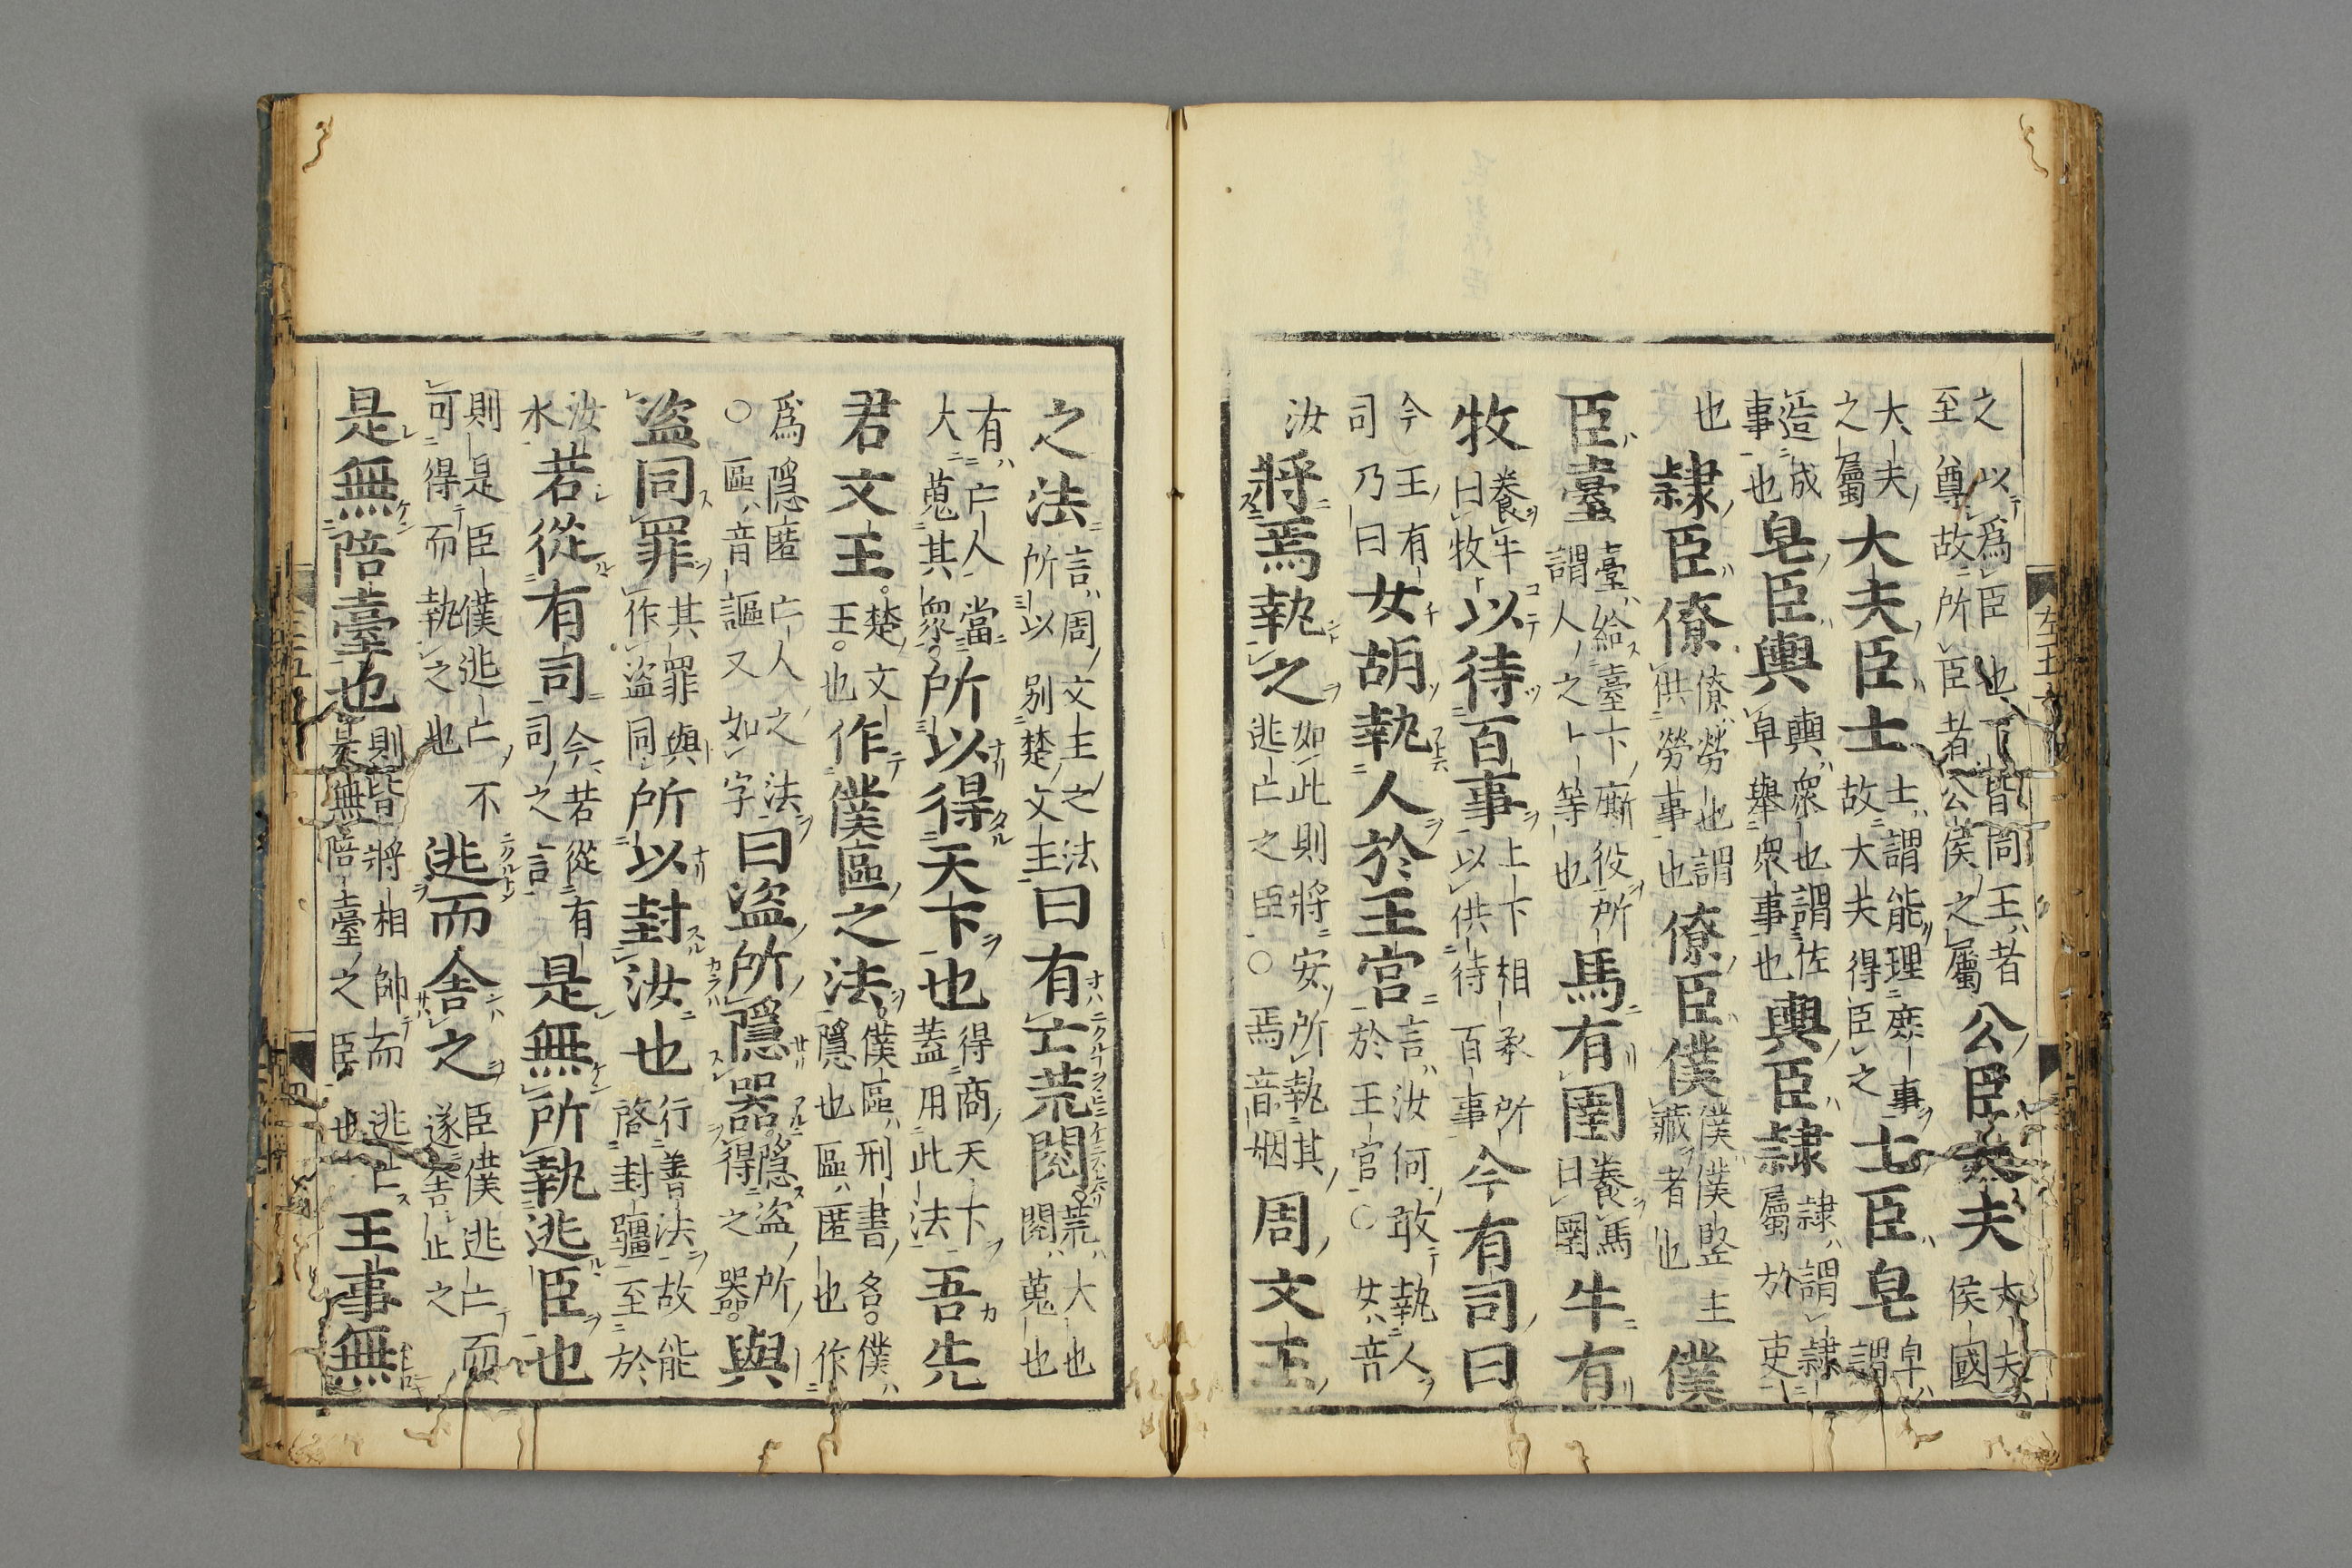 之以爲臣也下皆同王者
至尊故所臣者公侯之屬公臣大夫大夫
侯國
大夫
之屬大夫臣士士謂能理庶事
故大夫得臣之士臣皂皂
謂
造成
事也皂臣輿輿衆也謂佐
皁舉衆事也輿臣隸隸謂隸
屬於吏
也隸臣僚僚勞也謂
供勞事也僚臣僕僕僕豎主
藏者也僕
臣臺臺給臺下廝役所
謂人之下等也馬有圉養馬
曰圉牛有
牧養牛
曰牧以待百事上下相承所
以供待百事今有司曰
今王有
司乃曰女胡執人於王官言汝何敢執人
於王官○女音
汝將焉執之如此則將安所執其
逃亡之臣○焉音烟周文王
之法言周文王之法
所以別楚文王曰有亡荒閱荒大也
閱蒐也
有亡人當
大蒐其衆所以得天下也得商天下
蓋用此法吾先
君文王楚文
王也作僕區之法僕區刑書名僕
隱也區匿也作
爲隱匿亡人之法
○區音謳又如字曰盗所隱器隱盗所
得之器與
盗同罪其罪與
作盗同所以封汝也行善法故能
啓封疆至於
汝
水若從有司今若從有
司之言是無所執逃臣也
則是臣僕逃亡不
可得而執之也逃而舍之臣僕逃亡而
遂舍止之
是無陪臺也則皆將相帥而逃亡
是無陪臺之臣也王事無